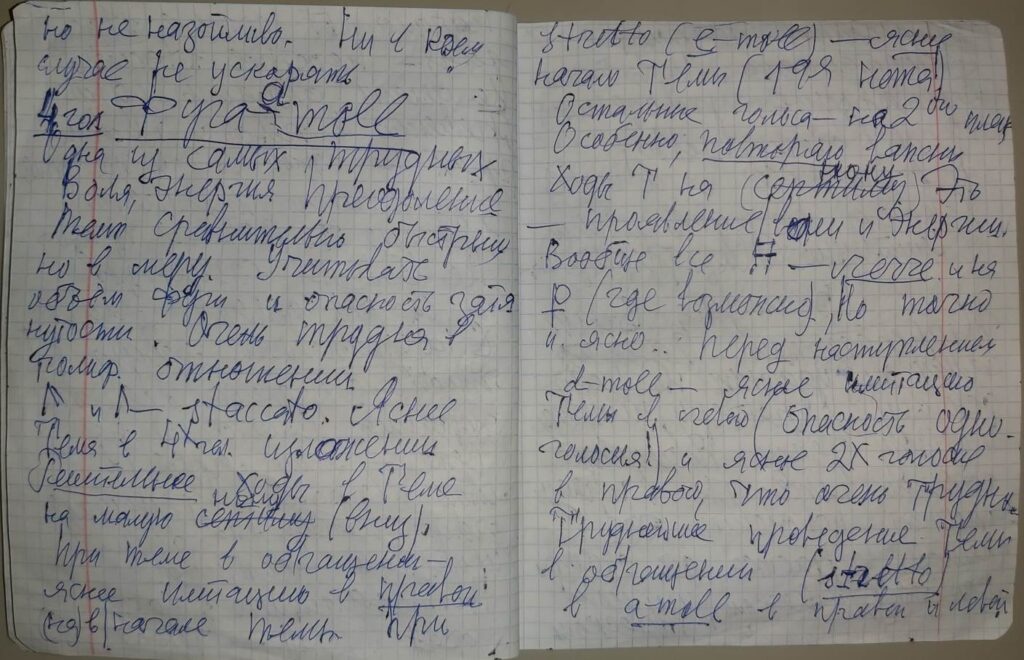 но не назойливо. Ни в коем
случае не ускорять
4 гол Фуга a-moll
Одна из самых трудных
Воля, энергия преодоление
Темп сравнительно быстрый
но в меру. Учитывать
объём фуги и опасность затя
нутости. Очень трудна в
полиф. отношении.
staccato. Яснее
Тема в 4х гол. изложении
Решительнее ходы в Теме
нону
на малую септиму (вниз).
При теме в обращении—
яснее имитацию в правой
в начале темы При
stretto (e-moll) — яснее
начало Темы (1ая нота)
Остальные голоса — на 2ой план
Особенно, повторяю важны
нону
Ходы Т на (септиму) Это
— проявление воли и энергии.
Вообще все — легче и на
p (где возможно), но точно
и ясно.. Перед наступлением
d-moll — яснее имитацию
Темы в левой (опасность одно-
голосия!) и яснее 2х голосие
в правой, что очень трудно.
Труднейшее проведение Темы
в обращении (stretto)
в a-moll в правой и левой